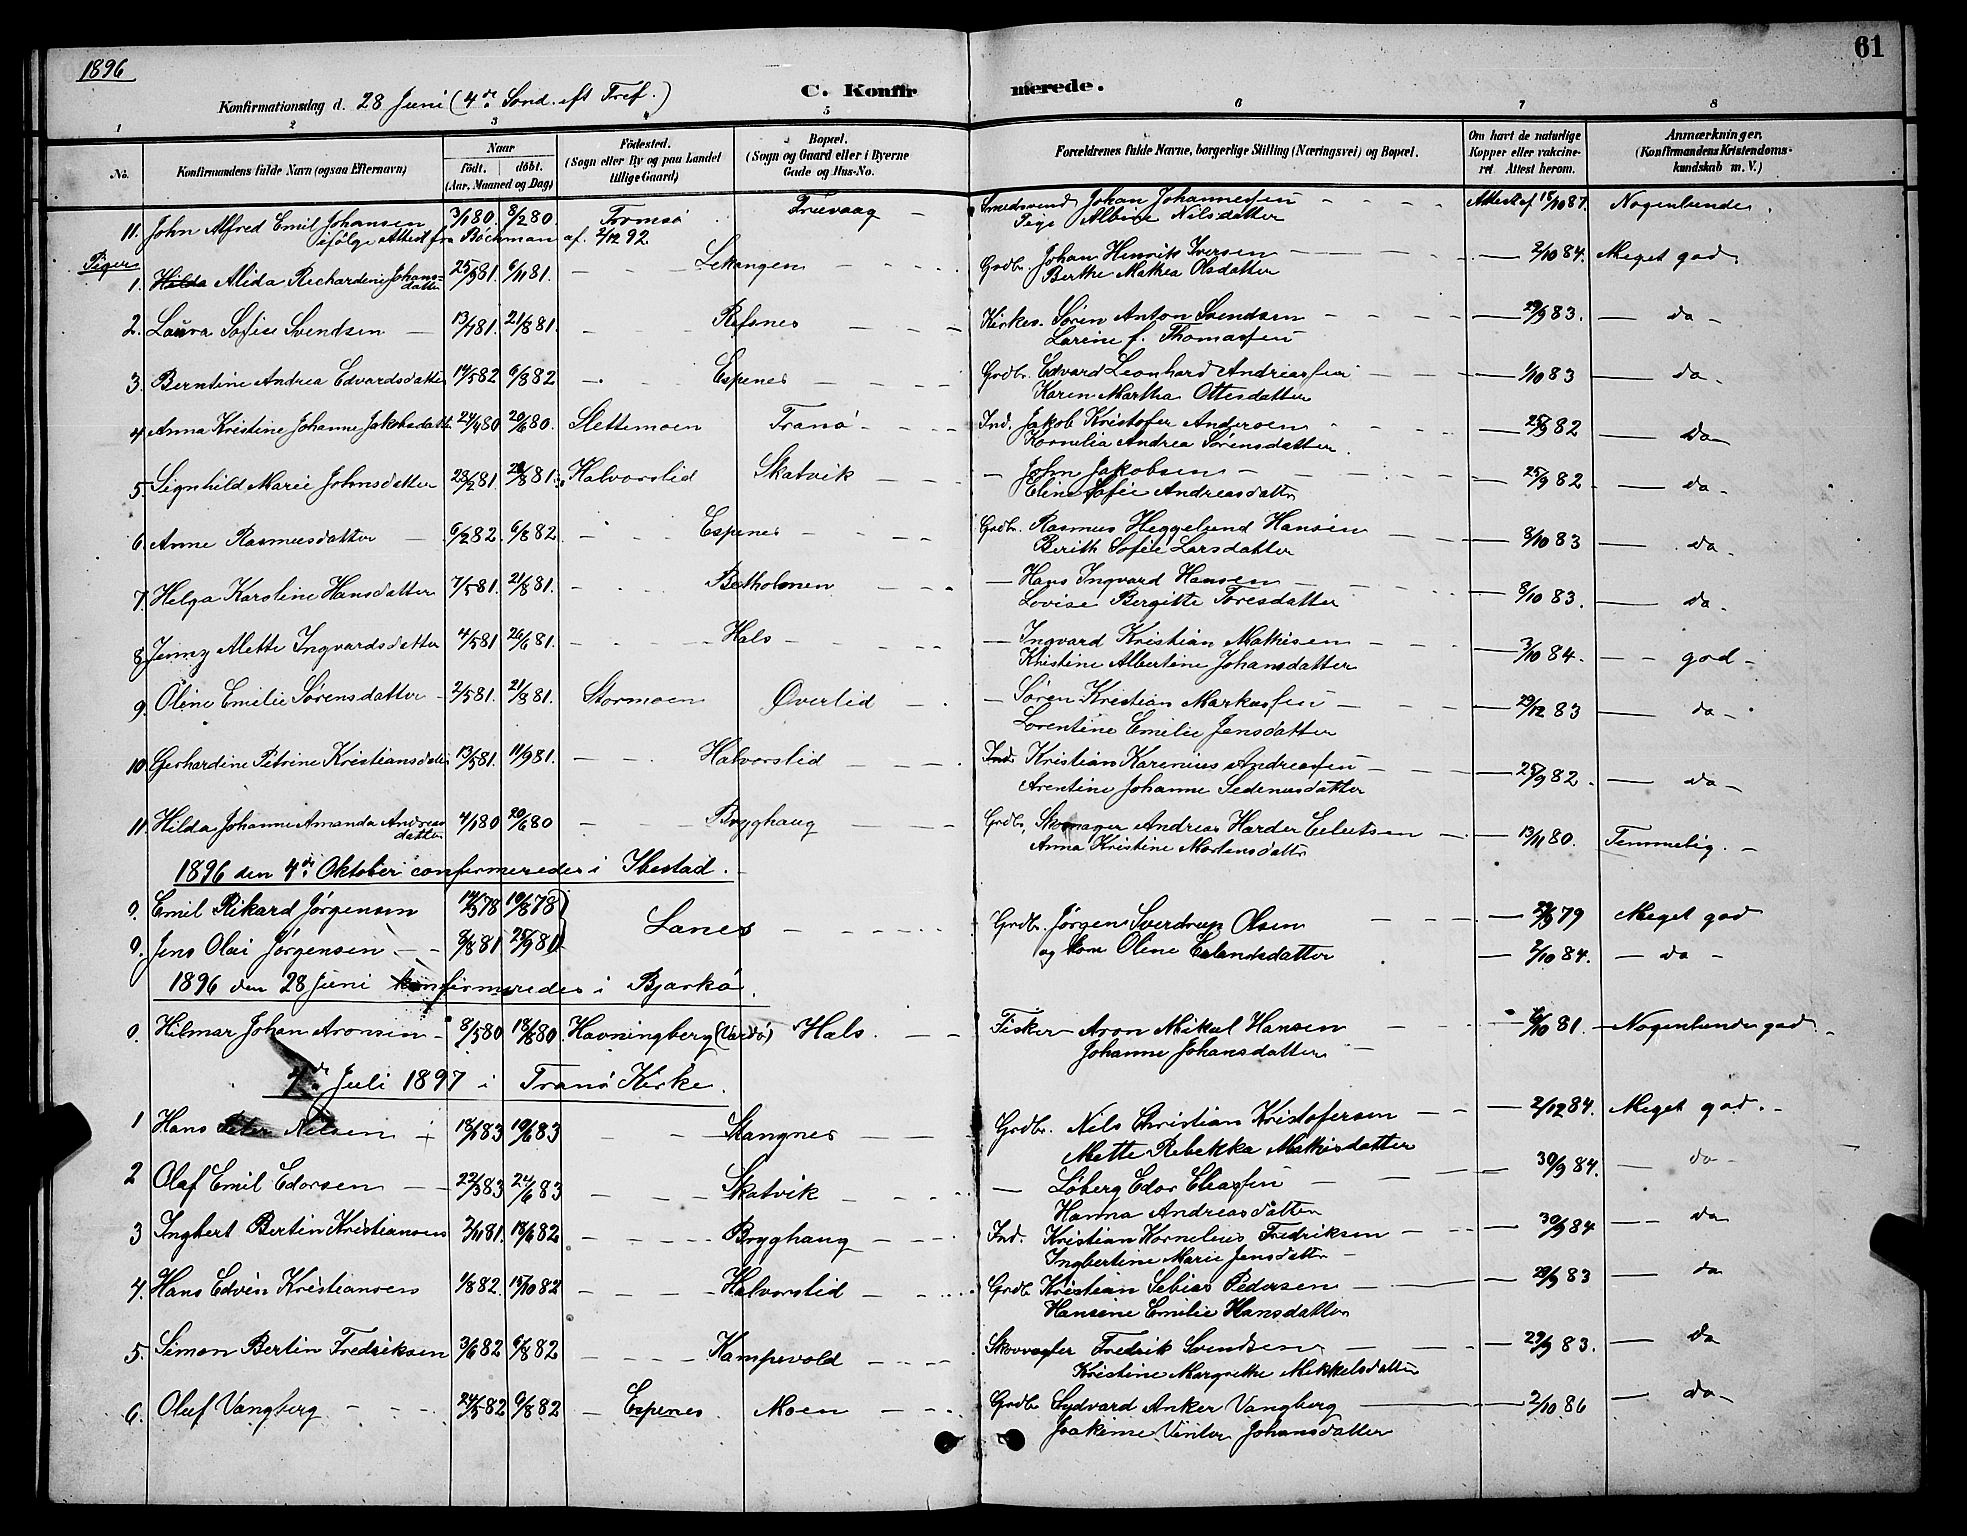 1896
61
Konfirmationsdag d. 28 Juni (4de Sond. eft Tref.)
C. Konfirmerede.
1 2 3 4 5 6 7 8
No. Konfirmandens fulde Navn (ogsaa Efternavn) Naar født. døbt. (Aar, Maaned og Dag) Födested. (Sogn eller By og paa Landet tillige Gaard) Bopæl. (Sogn og Gaard eller i Byerne Gade og Hus-No.) Forældrenes fulde Navne, borgerlige Stilling (Næringsvei) og Bopæl. Om havt de naturlige Kopper eller vakcineret. Attest herom. Anmærkninger. (Konfirmandens Kristendomskundskab m. V.)
11. John Alfred Emil Johansen 3/1 80 8/2 80 Tromsö Truevaag Smedsvend Johan Johannesen Attest af 18/10 87. Nogenlunde.
ifölge Attest fra Böckman af 2/12 92 Pige Albine Nilsdatter
Piger
1. Hilda Alida Rechardine Johansdatter 25/9 81. 6/11 81. Lekangen Grdbr. Johan Henrik Iversen 2/10 84. Meget god
Berthe Mathea Olsdatter
2. Laura Sofie Svendsen 13/7 81. 21/8 81. Refsnes Kirkes. Sören Anton Svendsen 29/9 83. do
Larine f. Thomassen
3. Berntine Andrea Edvardsdatter 14/5 82 6/8 82 Espenes Grdbr. Edvard Leonhard Andreassen 1/10 83 do
Karen Martha Ottesdatter
4 Anna Kristine Johanne Jakobsdatter 24/4 80 20/6 80. Slettemoen Tranö Ind. Jakob Kristofer Andersen 25/9 82 do
Kornelia Andrea Sörensdatter
5. Signhild Marie Johnsdatter 23/2 81 21/8 81. Halvorslid Skatvik John Jakobsen 25/9 82 do
Eline Sofie Andreasdatter
6. Anne Rasmusdatter 6/2 82. 6/8 82. Espenes Grdbr. Rasmus Heggelund Hansen 8/10 83 do
Berith Sofie Larsdatter
7 Helga Karoline Hansdatter 7/5 81. 21/8 81. Bothobmen Hans Ingvard Hansen 8/10 83. do
Lovise Bergitte Toresdatter
8 Jenny Alette Ingvardsdatter 4/5 81 26/6 81. Hals Ingvard Kristian Mathisen 3/10 84. god
Kristine Albertine Johansdatter
9. Oline Emilie Sörensdatter 2/5 81. 21/8 81. Stormoen Överlid Sören Kristian Markussen 29/12 83 do
Lorentine Emilie Jensdatter
10 Gerhardine Petrine Kristiansdatter 13/5 81. 11/9 81. Halvorslid Ind. Kristian Karenius Andreassen 25/9 82. do
Arentine Johanne Sedeniusdatter
11 Hilda Johanne Amanda Andreasdatter 4/1 80 20/6 80 Bryghaug Grdbr, Skomager Andreas Harder Eilertsen 13/11 80. Temmelig.
Anna Kristine Mortensdatter
1896 den 4de Oktober confirmeredes i Ibestad.
9. Emil Rikard Jörgensen 14/3 78 19/8 78 Lanes Grdbr. Jörgen Sverdrup Olsen 29/9 79 Meget god
9. Jens Olai Jörgensen 8/8 81 25/9 81 og kone Oline Erlandsdatter 2/10 84. do
1896 den 28 Juni konfirmeredes i Bjarkö.
9. Hilmar Johan Aronsen 8/5 80 18/6 80 Havningberg (Vardö) Hals. Fisker Aron Mikal Hansen 6/10 81. Nogenlunde god.
Johanne Johansdatter
4de Juli 1897 i Tranö Kirke.
1 Hans Peter Nilsen 18/1 83 10/6 83 Stangnes Grdbr. Nils Christian Kristofersen 2/12 84. Meget god.
Mette Rebekka Mathisdatter
2 Olaf Emil Edorsen 22/3 83 24/6 83 Skatvik Löberg Edor Eliassen 30/9 84. do
Hanna Andreasdatter
3 Ingbert Bertin Kristiansen 2/11 81. 18/6 82 Bryghaug Ind. Kristian Kornelius Fredriksen 30/9 84 do
Ingbertine Marie Jensdatter
4. Hans Edvin Kristiansen 1/8 82. 15/10 82 Halvorslid Grdbr Kristian Sebias Pedersen 29/9 83 do
Hansine Emilie Hansdatter
5. Simon Bertin Fredriksen 3/6 82 6/8 82 Kampevold Skovvogter Fredrik Svendsen 29/9 83. do
Kristine Margrethe Mikkelsdatter
6. Oluf Vangberg 24/5 82 6/8 82 Espenes Moen Grdbr Sydvard Anker Vangberg 2/10 86 do
Joakime Vinter Johansdatter